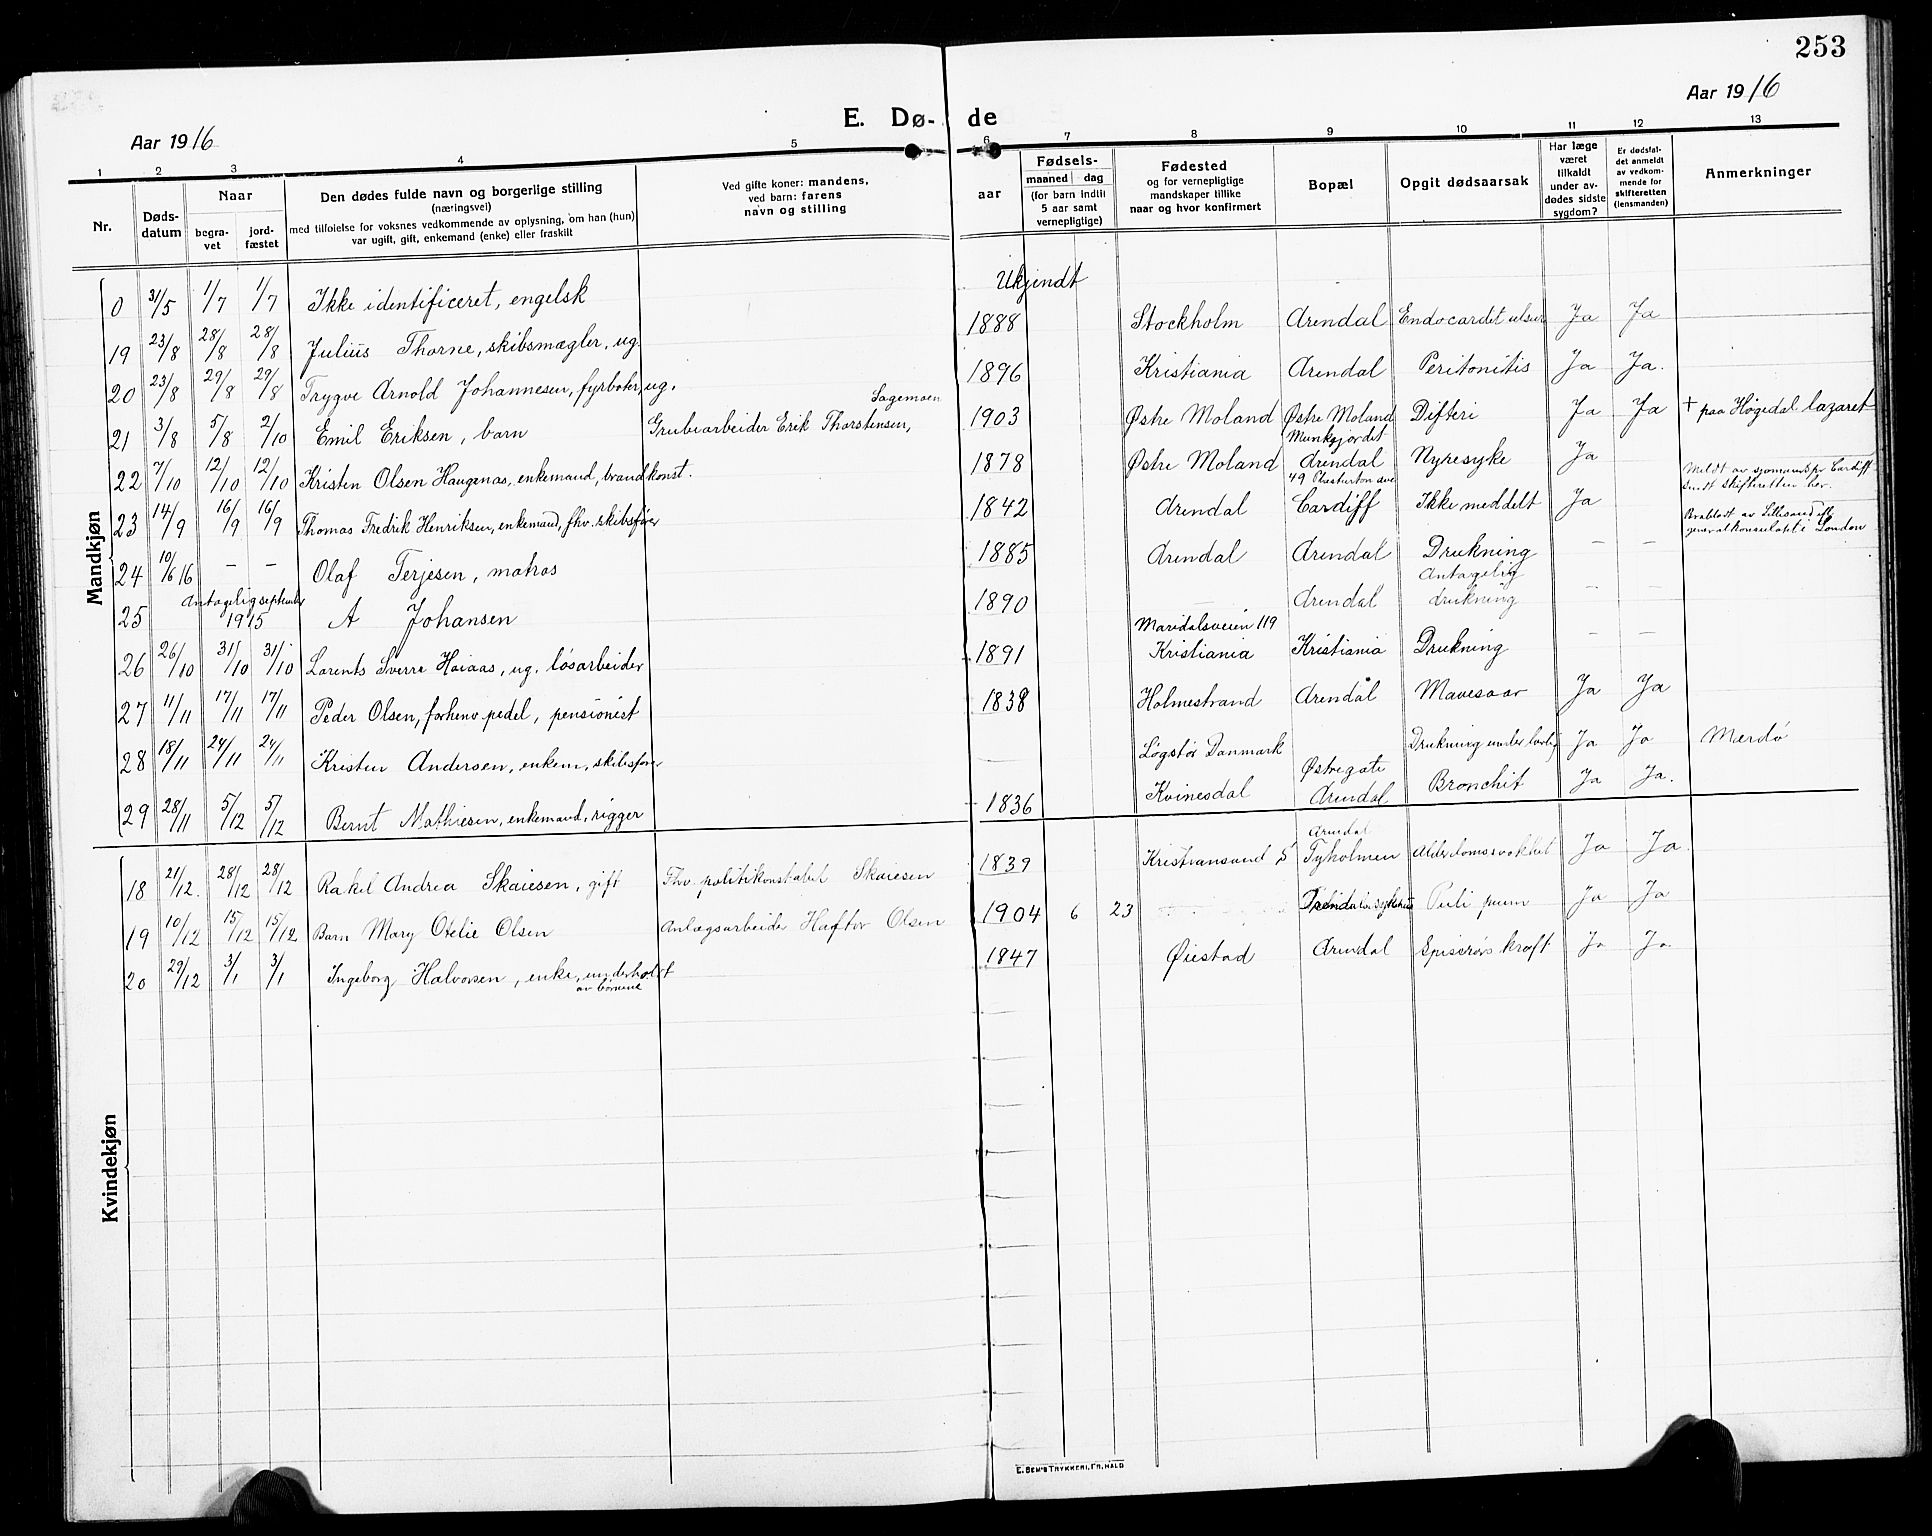 253
Aar 1916
E. Dø- de
Aar 1916
1 2 3 4 5 6 7 8 9 10 11 12 13
Nr.
Døds-
datum
Naar
begra-
vet
jord-
fæstet
Den dødes fulde navn og borgerlige stilling
(næringsvei)
med tilføielse for voksnes vedkommende av oplysning, om han (hun)
var ugift, gift, enkemand (enke) eller fraskilt
Ved gifte koner: mandens,
ved barn: farens
navn og stilling
aar
Fødsels-
maaned dag
(for barn indtil
5 aar samt
vernepligtige)
Fødested
og for vernepligtige
mandskaper tillike
naar og hvor konfirmert
Bopæl
Opgit dødsaarsak
Har læge
været
tilkaldt
under av-
dødes sidste
sygdom?
Er dødsfal-
det anmeldt
av vedkom-
mende for
skifteretten
(lensmanden)
Anmerkninger
Mandkjøn
0 31/5 1/7 1/7 Ikke identificeret, engelsk Ukjendt
19 23/8 28/8 28/8 Julius Thorne, skibsmægler, ug. 1888 Stockholm Arendal Endocardit ulsur Ja Ja
20 23/8 29/8 29/8 Trygve Arnold Johannesen, fyrbøter, ug. 1896 Kristiania Arendal Peritonitis Ja Ja.
Sagemoen
21 3/8 5/8 2/10 Emil Eriksen, barn Grubearbeider Erik Thorstensen, 1903 Østre Moland Østre Moland Difteri Ja Ja + paa Høgedal lazaret
Munkgjordet
22 7/10 12/10 12/10 Kristen Olsen Haugenæs, enkemand, brandkonst. 1878 Østre Moland Arendal Nyresyke Ja
49
23 14/9 16/9 16/9 Thomas Fredrik Henriksen, enkemand, fhv. skibsfører 1842 Arendal Cardiff Ikke meddelt Ja Meldt av sjømandspr Cardiff
Sendt skifteretten her.
24 10/6 16 — — Olaf Terjesen, matros 1885 Arendal Arendal Drukning — — av Lillesand efter
generalkonsulatet i London
25 Antagelig september
1915 A Johansen 1890 — Arendal Antagelig
drukning — —
Maridalsveien 119
26 26/10 31/10 31/10 Lorents Sverre Haiaas, ug. løsarbeider 1891 Kristiania Kristiania Drukning — —
27 11/11 17/11 17/11 Peder Olsen, forhenv. pedel, pensionist 1838 Holmestrand Arendal Mavesaar Ja Ja
28 18/11 24/11 24/11 Kristen Andersen, enkem, skibsfører — Løgstør Danmark Drukning under Ja Ja Mærdø
29 28/11 5/12 5/12 Bernt Mathiesen, enkemand, rigger 1836 Kvinesdal Østregate
Arendal Bronchit Ja Ja.
Kvindekjøn
18 21/12. 28/12 28/12 Rakel Andrea Skaiesen, gift Fhv. politikonstabel Skaiesen 1839 Kristiansand S Arendal
Tyholmen Alderdomssvakhet Ja Ja.
19 10/12 15/12 15/12 Barn Mary Otelie Olsen Anlægsarbeider Haftor Olsen 1904 6 23 Ja Ja
20 29/12 3/1 3/1 Ingeborg Halvorsen, enke, underholdt
av børnene 1847 Øiestad Arendal Spiserørs kræft Ja Ja.
E. SEM'S TRYKKERI, FR.HALD